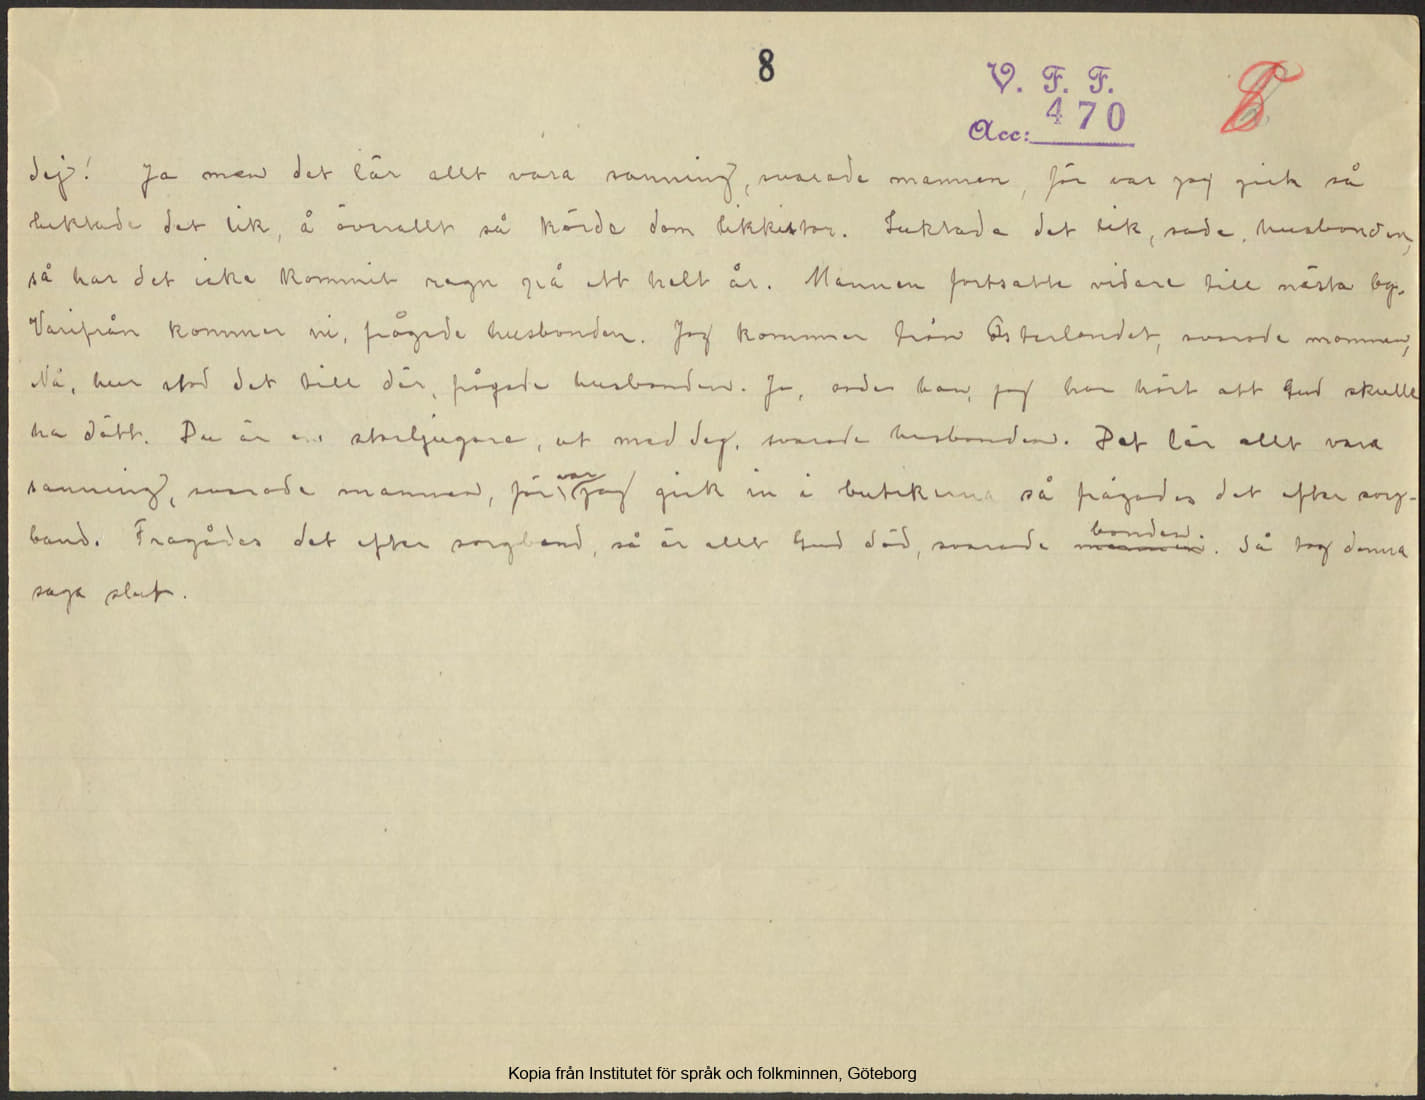 8
V. F. F.
Acc: 470
8
dej! Ja men det lär allt vara sanning, svarade mannen, för var jag gick så
luktade det lik, å överallt så körde dom likkistor. Luktade det lik, sade husbonden,
så har det icke kommit regn på ett helt år. Mannen fortsatte vidare till nästa by.
Varifrån kommer ni, frågade husbonden. Jag kommer från Österlandet, svarade mannen,
Nå, hur stod det till där, frågade husbonden. Jo, sade han, jag har hört att Gud skulle
ha dött. Du är en storljugare, ut med dej, svarade husbonden. Det lär allt vara
sanning, svarade mannen, för var jag gick in i butikerna så frågades det efter sorg-
band. Fragådes det efter sorgband, så är allt Gud död, svarade mannen bonden. Så tog denna
saga slut.
Kopia från Institutet för språk och folkminnen, Göteborg